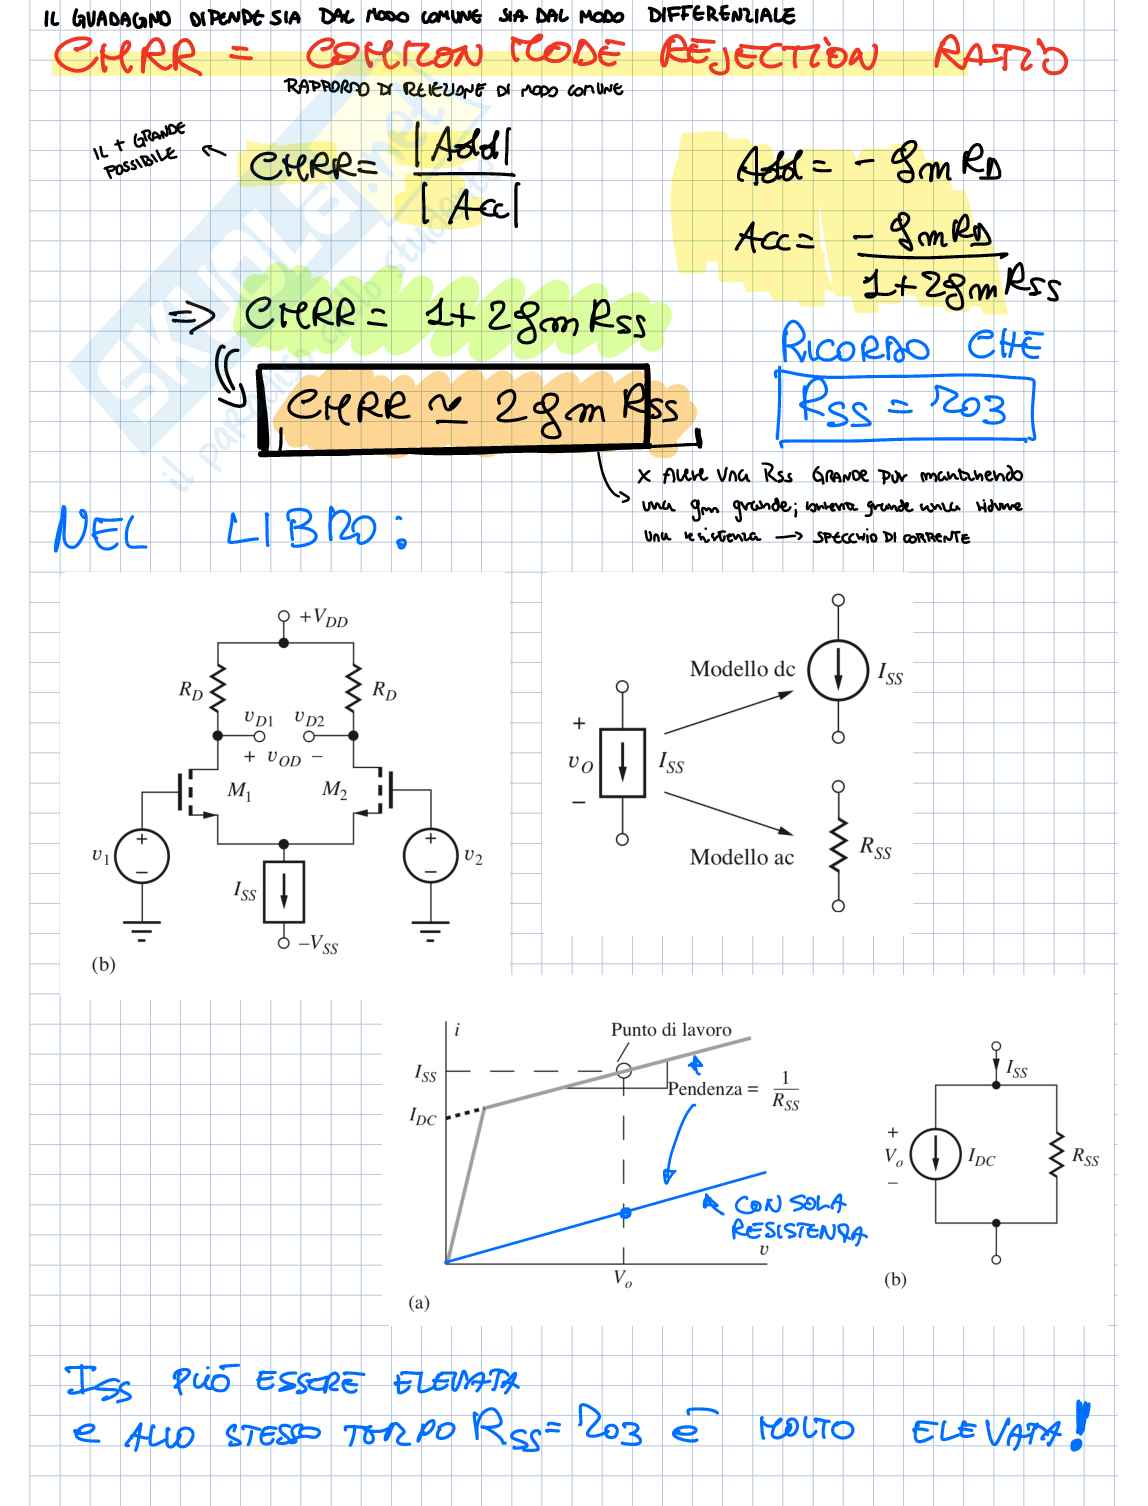 IL GUADAGNO DIPENDE SIA DAL MODO COMUNE SIA DAL MODO DIFFERENZIALE
CMRR = COMMON MODE REJECTION RATIO
RAPPORTO DI REIEZIONE DI MODO COMUNE
IL + GRANDE
POSSIBILE
CMRR = |Add| / |Acc|
Add = - gm RD
Acc = - gm RD / 1+2gm RSS
=> CMRR = 1+2gm RSS
CMRR ≃ 2gm RSS
RICORDO CHE
RSS = r03
x avere una Rss GRANDE pur mantenendo
una gm grande; corrente grande senza ridurre
una resistenza → SPECCHIO DI CORRENTE
NEL LIBRO:
+VDD
RD
RD
vD1 vD2
+ vOD −
M1 M2
v1
+
−
+
−
v2
ISS
−VSS
(b)
Modello dc
ISS
+
vO
−
ISS
Modello ac
RSS
i
Punto di lavoro
ISS
IDC
Pendenza = 1 / RSS
CON SOLA
RESISTENZA
v
Vo
(a)
ISS
+
Vo
−
IDC
RSS
(b)
ISS PUÒ ESSERE ELEVATA
e ALLO STESSO TEMPO RSS = r03 è MOLTO ELEVATA!
SKUOLA.net